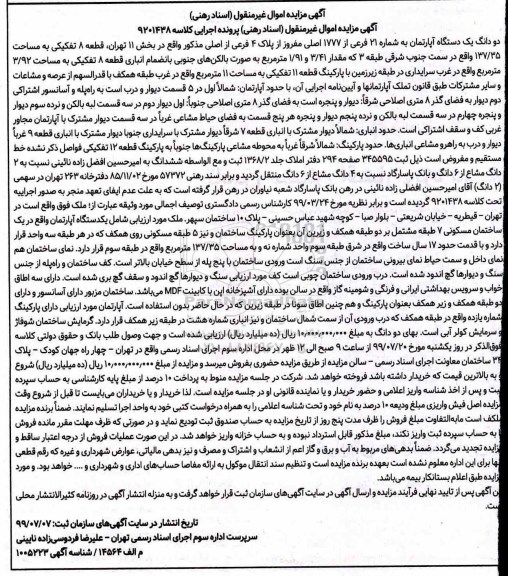 آگهی مزایده اموال غیرمنقول (اسناد رهنی)
آگهی مزایده اموال غیرمنقول (اسناد رهنی) پرونده اجرایی کلاسه ۹۲۰۱۴۳۸
دو دانگ یک دستگاه آپارتمان به شماره ۲۱ فرعی از ۱۷۷۷ اصلی مفروز از پلاک ۴ فرعی از اصلی مذکور واقع در بخش ۱۱ تهران، قطعه ۸ تفکیکی به مساحت
۱۳۷/۳۵ واقع در سمت جنوب شرقی طبقه ۳ که مقدار ۳/۴۱ و ۱/۹۱ مترمربع به صورت بالکن‌های جنوبی بانضمام انباری قطعه ۸ تفکیکی به مساحت ۳/۹۲
مترمربع واقع در غرب سرایداری در طبقه زیرزمین با پارکینگ قطعه ۱۱ تفکیکی به مساحت ۱۱ مترمربع واقع در غرب طبقه همکف با قدرالسهم از عرصه و مشاعات
و سایر مشترکات طبق قانون تملک آپارتمانها و آیین‌نامه اجرایی آن، با حدود آپارتمان: شمالاً اول در ۵ قسمت دیوار و درب است به راه‌پله و آسانسور اشتراکی
دوم دیوار به فضای گذر ۸ متری اصلاحی شرقاً: دیوار و پنجره است به فضای گذر ۸ متری اصلاحی جنوباً: اول دیوار دوم در سه قسمت لبه بالکن و نرده سوم دیوار
و پنجره چهارم در سه قسمت لبه بالکن و نرده پنجم دیوار و پنجره هر پنج قسمت به فضای حیاط مشاعی غرباً در سه قسمت دیوار مشترک با آپارتمان مجاور
غربی کف و سقف اشتراکی است. حدود انباری: شمالاً دیوار مشترک با انباری قطعه ۷ شرقاً دیوار مشترک با سرایداری جنوبا دیوار مشترک با انباری قطعه ۹ غرباً
دیوار و درب به راهرو مشاعی انباری‌ها. حدود پارکینگ: شمالاً شرقاً غرباً به محوطه مشاعی پارکینگ‌ها جنوباً به پارکینگ قطعه ۱۲ تفکیکی فواصل ذکر نشده خط
مستقیم و مفروض است ذیل ثبت ۳۴۵۵۹۵ صفحه ۲۹۴ دفتر املاک جلد ۱۳۶۸/۲ ثبت و مع الواسطه ششدانگ به امیرحسین افضل زاده نائینی نسبت به ۲
دانگ مشاع از ۶ دانگ و بانک پاسارگاد نسبت به ۴ دانگ مشاع از ۶ دانگ منتقل گردید و برابر سند رهنی ۵۷۳۷۲ مورخ ۸۵/۱۱/۰۲ دفترخانه ۲۶۳ تهران در سهمی
(۲ دانگ) آقای امیرحسین افضل زاده نائینی در رهن بانک پاسارگاد شعبه نیاوران در رهن قرار گرفته است که به علت عدم ایفای تعهد منجر به صدور اجراییه
تحت کلاسه ۹۲۰۱۴۳۸ گردیده است و برابر نظریه مورخ ۹۹/۰۳/۲۴ کارشناس رسمی دادگستری توصیف اجمالی مورد وثیقه عبارت از: ملک فوق واقع است در
تهران – قیطریه – خیابان شریعتی – بلوار صبا – کوچه شهید عباس حسینی – پلاک ۱۰ ساختمان سپهر. ملک مورد ارزیابی شامل یکدستگاه آپارتمان واقع در یک
ساختمان مسکونی ۷ طبقه مشتمل بر دو طبقه همکف و زیرین آن بعنوان پارکینگ ساختمان و نیز ۵ طبقه مسکونی روی همکف که در هر طبقه سه واحد قرار
دارد و با قدمت حدود ۱۷ سال ساخت واقع در شرق طبقه سوم واحد شماره نه و به مساحت ۱۳۷/۳۵ مترمربع واقع در طبقه سوم قرار دارد. نمای ساختمان هم
نمای داخل و سمت حیاط نمای بیرونی ساختمان از جنس سنگ است ورودی ساختمان با پنج پله از سطح خیابان بالاتر است. کف ساختمان و راه‌پله از جنس
سنگ و دیوارها گچ اندود شده است. درب ورودی ساختمان چوبی است کف مورد ارزیابی سنگ و دیوارها گچ اندود و سقف گچ بری شده است. دارای سه اطاق
خواب و سرویس بهداشتی ایرانی و فرنگی و شومینه گاز واقع در سالن بوده دارای آشپزخانه اپن با کابینت MDF می‌باشد. ساختمان مزبور دارای آسانسور و دارای
دو طبقه همکف و زیر همکف بعنوان پارکینگ و هم چنین اطاق سونا در طبقه زیرین که در حال حاضر بدون استفاده است. آپارتمان مورد ارزیابی دارای پارکینگ
شماره یازده واقع در طبقه همکف که درب ورودی آن از سمت شمال ساختمان و نیز انباری شماره هشت در طبقه زیر همکف قرار دارد. گرمایش ساختمان شوفاژ
و سرمایش کولر آبی است. بهای دو دانگ به مبلغ ۱۰,۰۰۰,۰۰۰,۰۰۰ ریال (ده میلیارد ریال) ارزیابی شده است و جهت وصول طلب بانک و حقوق دولتی کلاسه
فوق‌الذکر در روز یکشنبه مورخ ۹۹/۰۷/۲۰ از ساعت ۹ صبح الی ۱۲ ظهر در محل اداره سوم اجرای اسناد رسمی واقع در تهران – چهار راه جهان کودک – پلاک
۲۴ ساختمان معاونت اجرای اسناد رسمی – سالن مزایده از طریق مزایده حضوری بفروش میرسد و مزایده از مبلغ ۱۰,۰۰۰,۰۰۰,۰۰۰ ریال (ده میلیارد ریال) شروع
و به بالاترین قیمت که خریدار داشته باشد فروخته خواهد شد. شرکت در جلسه مزایده منوط به پرداخت ۱۰ درصد از مبلغ پایه کارشناسی به حساب سپرده
ثبت و پس از اخذ شناسه واریز اعلامی و حضور خریدار و یا نماینده قانونی او در جلسه مزایده است. لذا خریدار و یا خریداران می‌بایست تا قبل از شروع وقت
مزایده اصل فیش واریزی مبلغ ودیعه ۱۰ درصد به نام خود و تحت شناسه اعلامی را به همراه درخواست کتبی خود به واحد اجرا تسلیم نمایند. ضمناً برنده مزایده
مکلف است مابه‌التفاوت مبلغ فروش را ظرف مدت پنج روز از تاریخ مزایده به حساب صندوق ثبت تودیع نماید و در صورتی که ظرف مهلت مقرر مانده فروش
را به حساب سپرده ثبت واریز نکند، مبلغ مذکور قابل استرداد نبوده و به حساب خزانه واریز خواهد شد. در این صورت عملیات فروش از درجه اعتبار ساقط و
مزایده تجدید می‌گردد. ضمناً بدهی‌های مربوط به آب و برق و گاز اعم از انشعاب و اشتراک و مصرف و نیز بدهی مالیاتی، عوارض شهرداری و غیره که رقم قطعی
آنها برای این اداره معلوم نشده است بعهده برنده مزایده است و تنظیم سند انتقال موکول به ارائه مفاصا حساب‌های اداری و شهرداری و .... خواهد بود. و مورد
مزایده طبق اعلام بستانکار بیمه می‌باشد.
این آگهی پس از تایید نهایی فرآیند مزایده و ارسال آگهی در سایت آگهی‌های سازمان ثبت قرار خواهد گرفت و به منزله انتشار آگهی در روزنامه کثیرالانتشار محلی
است.
تاریخ انتشار در سایت آگهی‌های سازمان ثبت: ۹۹/۰۷/۰۷
سرپرست اداره سوم اجرای اسناد رسمی تهران – علیرضا فردوسی‌زاده نایینی
م الف ۱۴۵۶۴ / شناسه آگهی ۱۰۰۵۲۲۳